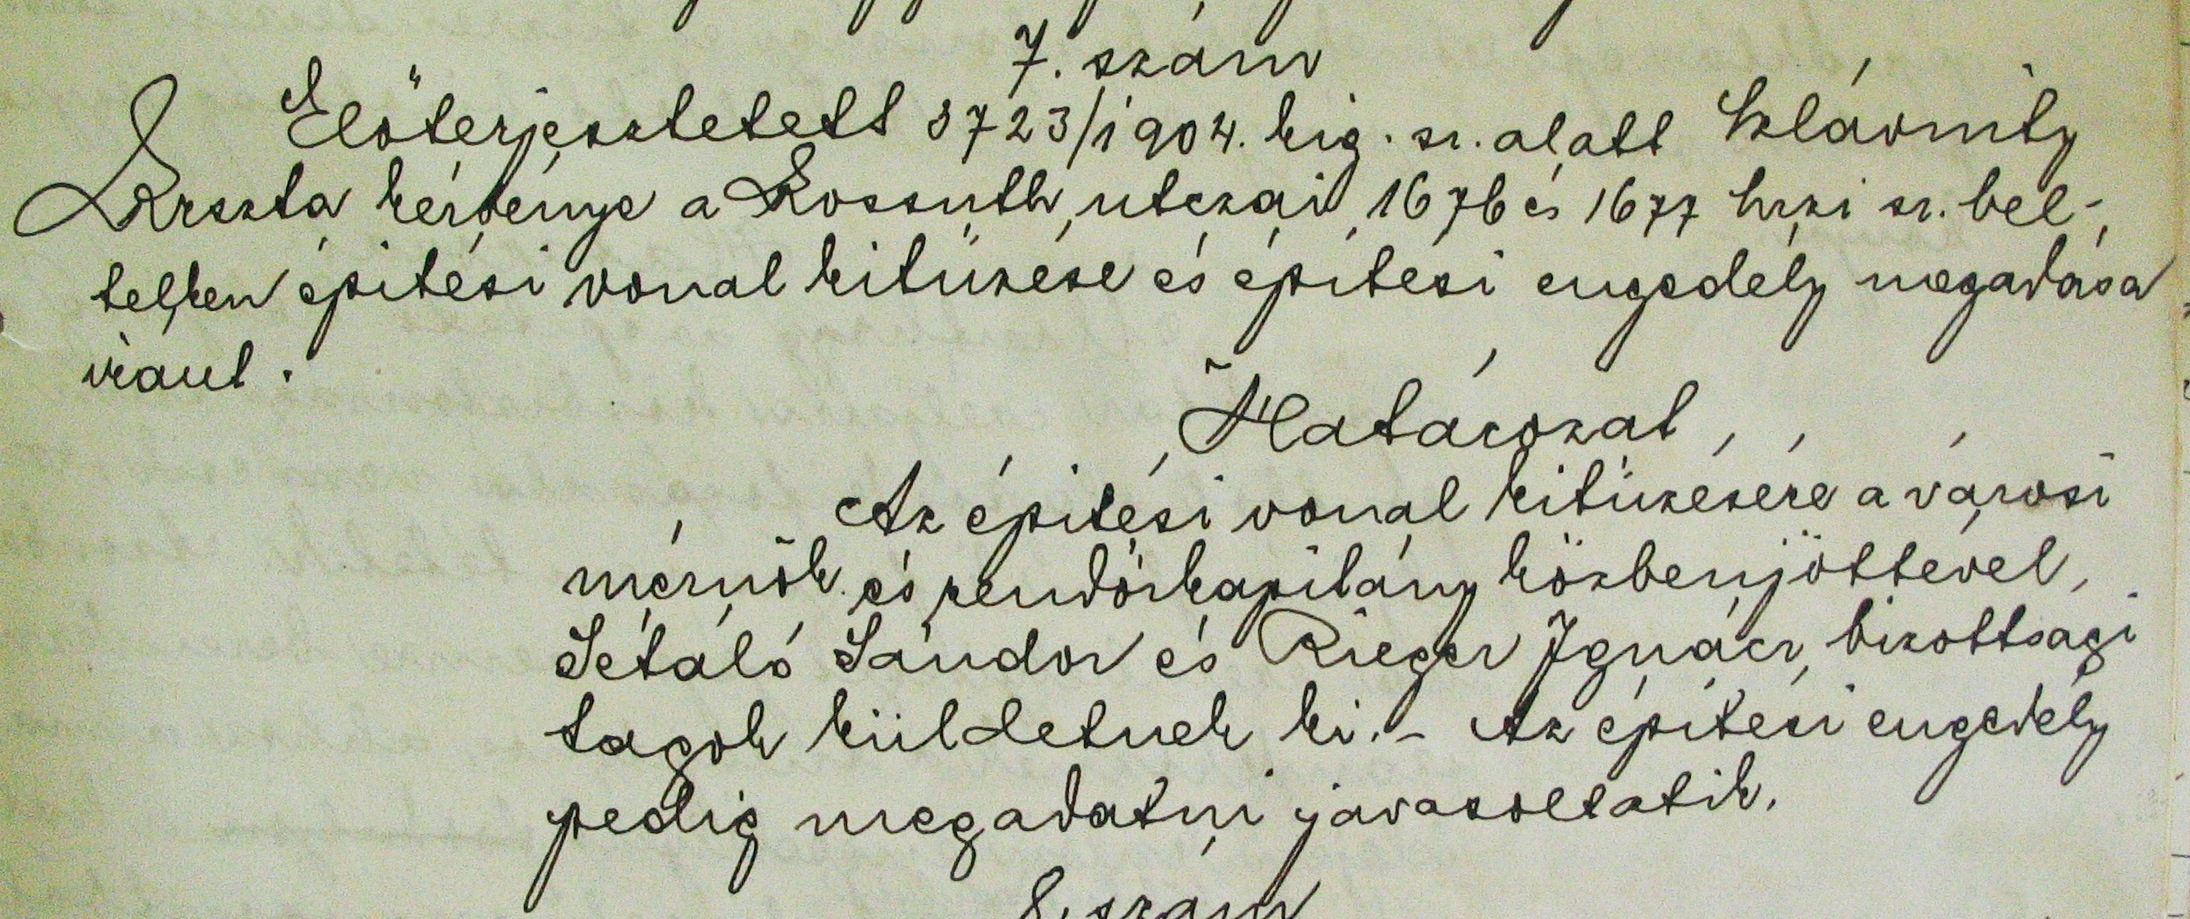 7. szám
Előterjesztetett 3723/1904. kig. sz. alatt Szlávnity
Krszta kérvénye a Kossuth utczai 1676 és 1677 hrzi sz. bel-
telken épitési vonal kitüzése és épitési engedély megadása
iránt.
Határozat
Az épitési vonal kitüzésére a városi
mérnök és rendőrkapitány közbenjöttével,
Sétáló Sándor és Rieger Ignácz bizottsági
tagok küldetnek ki. – Az épitési engedély
pedig megadatni javasoltatik.
8. szám